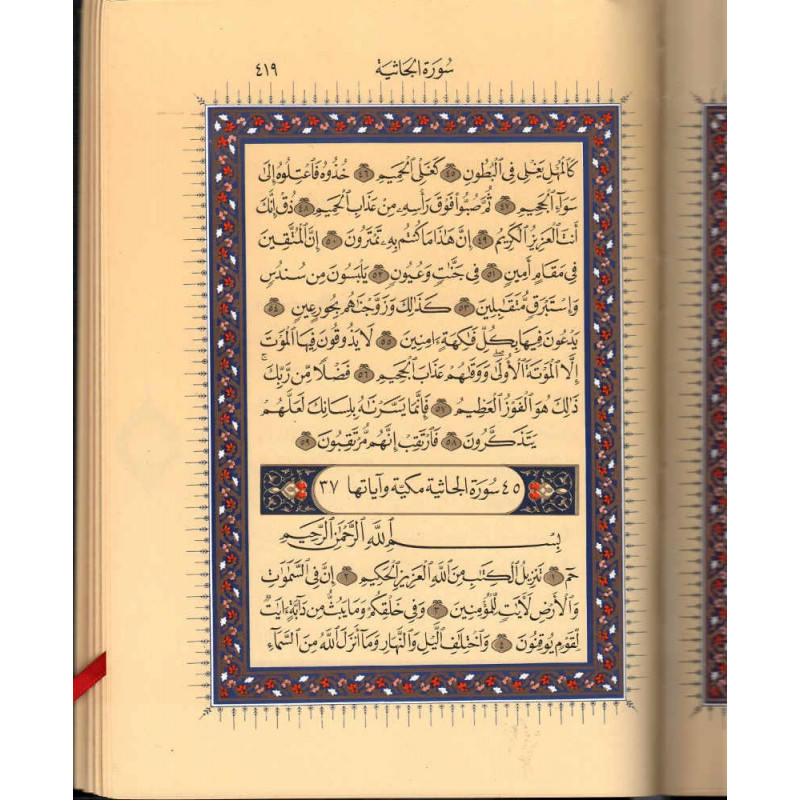 سورة الجاثية ٤١٩
كَالْمُهْلِ يَغْلِي فِي الْبُطُونِ ٤٥ كَغَلْيِ الْحَمِيمِ ٤٦ خُذُوهُ فَاعْتِلُوهُ إِلَىٰ
سَوَاءِ الْجَحِيمِ ٤٧ ثُمَّ صُبُّوا فَوْقَ رَأْسِهِ مِنْ عَذَابِ الْحَمِيمِ ٤٨ ذُقْ إِنَّكَ
أَنتَ الْعَزِيزُ الْكَرِيمُ ٤٩ إِنَّ هَٰذَا مَا كُنتُم بِهِ تَمْتَرُونَ ٥٠ إِنَّ الْمُتَّقِينَ
فِي مَقَامٍ أَمِينٍ ٥١ فِي جَنَّاتٍ وَعُيُونٍ ٥٢ يَلْبَسُونَ مِن سُندُسٍ
وَإِسْتَبْرَقٍ مُّتَقَابِلِينَ ٥٣ كَذَٰلِكَ وَزَوَّجْنَاهُم بِحُورٍ عِينٍ ٥٤
يَدْعُونَ فِيهَا بِكُلِّ فَاكِهَةٍ آمِنِينَ ٥٥ لَا يَذُوقُونَ فِيهَا الْمَوْتَ
إِلَّا الْمَوْتَةَ الْأُولَىٰ ۖ وَوَقَاهُمْ عَذَابَ الْجَحِيمِ ٥٦ فَضْلًا مِّن رَّبِّكَ ۚ
ذَٰلِكَ هُوَ الْفَوْزُ الْعَظِيمُ ٥٧ فَإِنَّمَا يَسَّرْنَاهُ بِلِسَانِكَ لَعَلَّهُمْ
يَتَذَكَّرُونَ ٥٨ فَارْتَقِبْ إِنَّهُم مُّرْتَقِبُونَ ٥٩
٤٥ سورة الجاثية مكية وآياتها ٣٧
بِسْمِ اللَّهِ الرَّحْمَٰنِ الرَّحِيمِ
حم ١ تَنزِيلُ الْكِتَابِ مِنَ اللَّهِ الْعَزِيزِ الْحَكِيمِ ٢ إِنَّ فِي السَّمَاوَاتِ
وَالْأَرْضِ لَآيَاتٍ لِّلْمُؤْمِنِينَ ٣ وَفِي خَلْقِكُمْ وَمَا يَبُثُّ مِن دَابَّةٍ آيَاتٌ
لِّقَوْمٍ يُوقِنُونَ ٤ وَاخْتِلَافِ اللَّيْلِ وَالنَّهَارِ وَمَا أَنزَلَ اللَّهُ مِنَ السَّمَاءِ